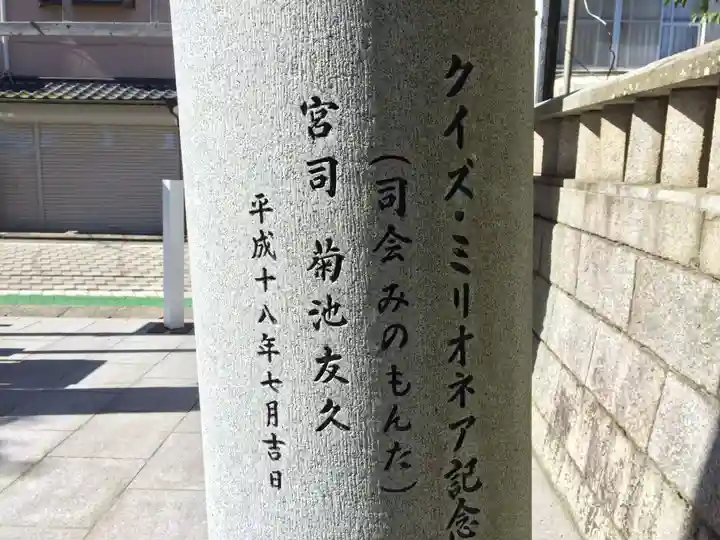 クイズ・ミリオネア記念
(司会みのもんた)
宮司 菊池友久
平成十八年七月吉日